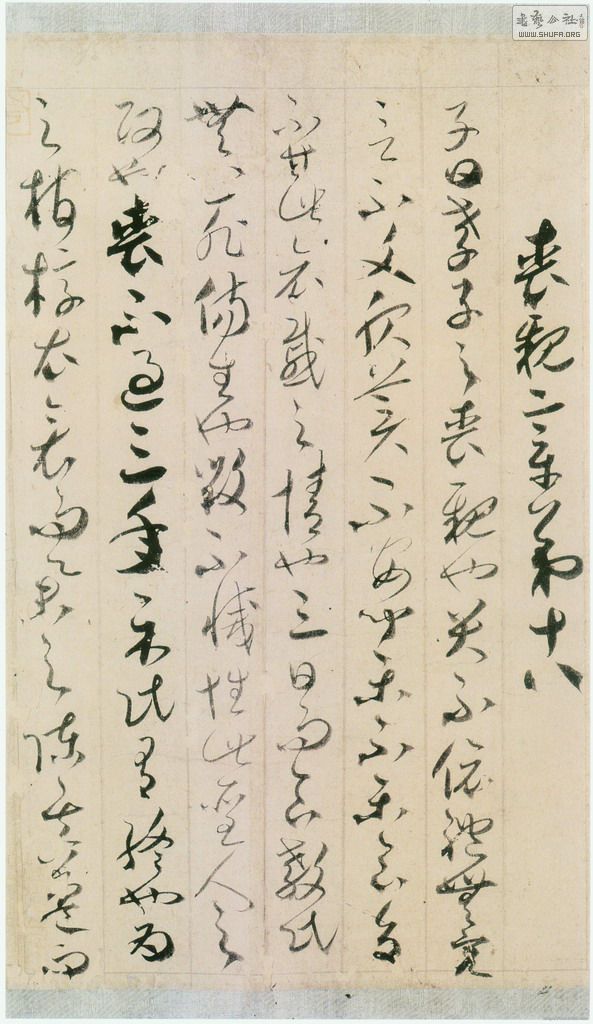 書艺公社
WWW.SHUFA.ORG
喪親章第十八
子曰孝子之喪親也哭不依禮無容
言不文服美不安聞樂不樂食旨
不甘此哀戚之情也三日而食教民
無以死傷生也毀不滅性此聖人之
政也喪不過三年示民有終也為
之棺椁衣衾而舉之陳其簠簋而